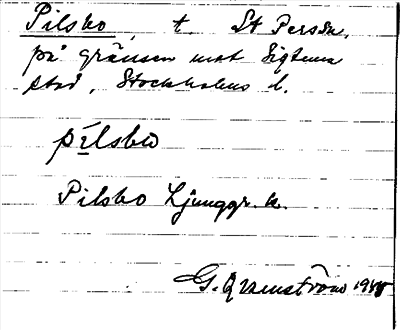 Pilsbo, t. St Perssn.
på gränsen mot Sigtuna
stad, Stockholms l.
pilsbo
Pilsbo Ljunggr. k.
G. Qvarnström